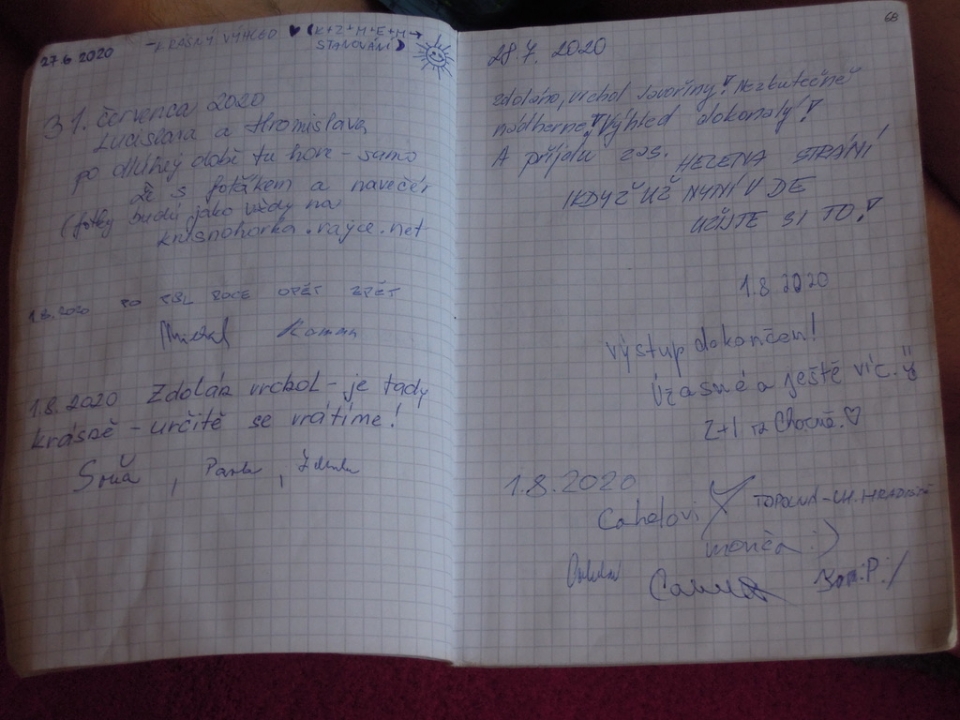 27.6 2020 - KRÁSNÝ VÝHLED ♥ (K+Z+M+E+M→
STANOVÁNÍ)
31. července 2020
Lucislava a Hromislava
po dlúhej době tu hore - samo
že s foťákem a navečér
(fotky budú jako vždy na
.rajce.net
1.8.2020 PO ROCE OPĚT ZPĚT
Michal
1.8.2020 Zdolán vrchol - je tady
krásně - určitě se vrátíme!
Soňa, Pavla, Zdenka
68
28.7. 2020
zdoláno, vrchol Javořiny! Nezbutečně
nádherné! Výhled dokonalý!
A přijdu zas. HELENA STRÁNÍ
IKDYŽ UŽ NYNÍ V DE
UŽIJTE SI TO!
1.8.2020
Výstup dokončen!
Úžasné a ještě víc.
2+1 z Chocně. ♡
1.8.2020
Cahelovi TOPOLNÁ - UH. HRADIŠTĚ
monča :)